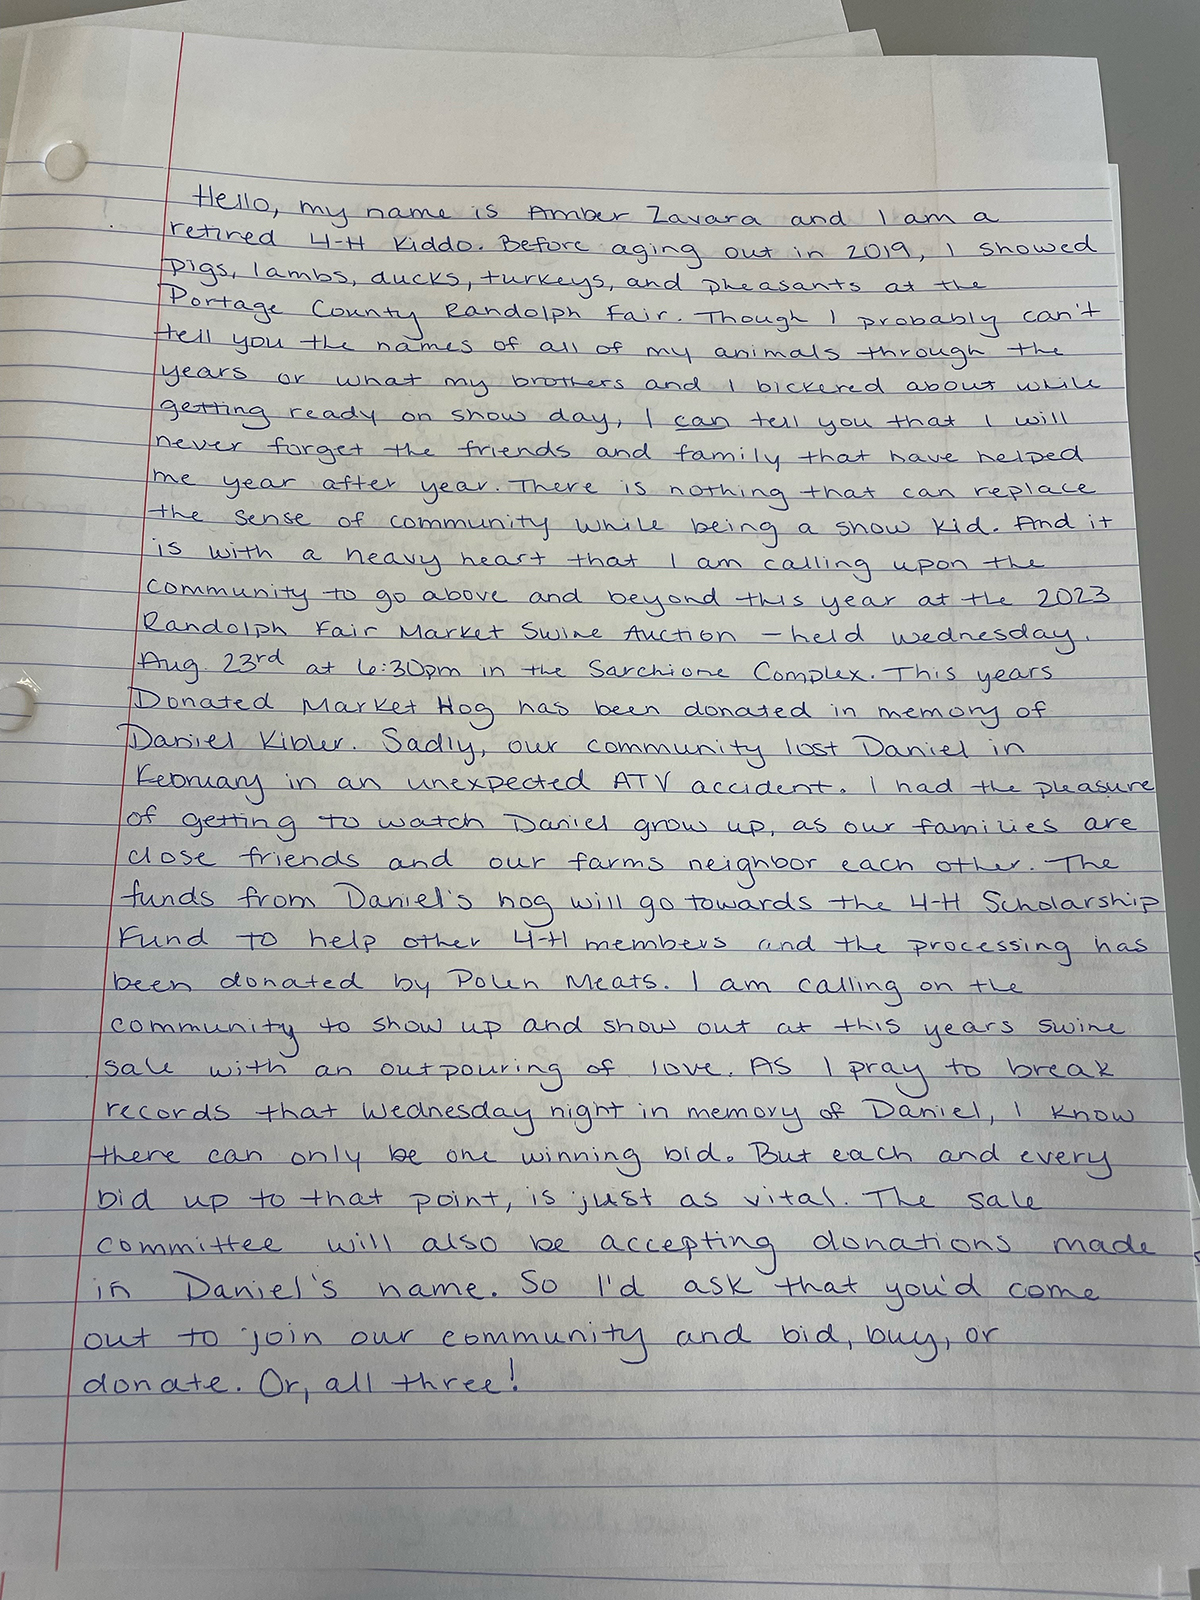 Hello, my name is Amber Zavara and I am a
retired 4-H Kiddo. Before aging out in 2019, I showed
pigs, lambs, ducks, turkeys, and pheasants at the
Portage County Randolph Fair. Though I probably can't
tell you the names of all of my animals through the
years or what my brothers and I bickered about while
getting ready on show day, I can tell you that I will
never forget the friends and family that have helped
me year after year. There is nothing that can replace
the sense of community while being a show kid. And it
is with a heavy heart that I am calling upon the
community to go above and beyond this year at the 2023
Randolph Fair Market Swine Auction – held Wednesday,
Aug. 23rd at 6:30pm in the Sarchione Complex. This years
Donated Market Hog has been donated in memory of
Daniel Kibler. Sadly, our community lost Daniel in
February in an unexpected ATV accident. I had the pleasure
of getting to watch Daniel grow up, as our families are
close friends and our farms neighbor each other. The
funds from Daniel's hog will go towards the 4-H Scholarship
Fund to help other 4-H members and the processing has
been donated by Polen Meats. I am calling on the
community to show up and show out at this years swine
sale with an outpouring of love. As I pray to break
records that Wednesday night in memory of Daniel, I know
there can only be one winning bid. But each and every
bid up to that point, is just as vital. The sale
committee will also be accepting donations made
in Daniel's name. So I'd ask that you'd come
out to join our community and bid, buy, or
donate. Or, all three!